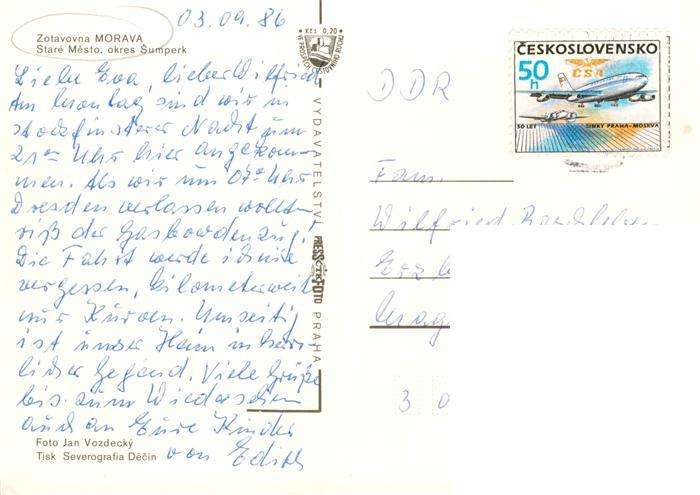 03.09.86
Zotavovna MORAVA
Staré Město, okres Šumperk
Liebe Eva, lieber Wilfried
Am Montag sind wir in
stockfinsterer Nacht um
21ºº Uhr hier angekom-
men. Als wir um 07ºº Uhr
Dresden verlassen wollten
riß der Gasbowdenzug!
Die Fahrt werde ich nie
vergessen, kilometerweit
nur Kurven. Umseitig
ist unser Heim in herr-
licher Gegend. Viele Grüße
bis zum Wiedersehen
auch an Eure Kinder
von Edith
Foto Jan Vozdecký
Tisk Severografia Děčín
Kčs 0,20
VE PROSPĚCH CESTOVNÍHO RUCHU
VYDAVATELSTVÍ PRESSFOTO PRAHA
ČTK
ČESKOSLOVENSKO
50 h
ČSA
50 LET LINKY PRAHA-MOSKVA
DDR
Fam.
Wilfried
Mag
3 0